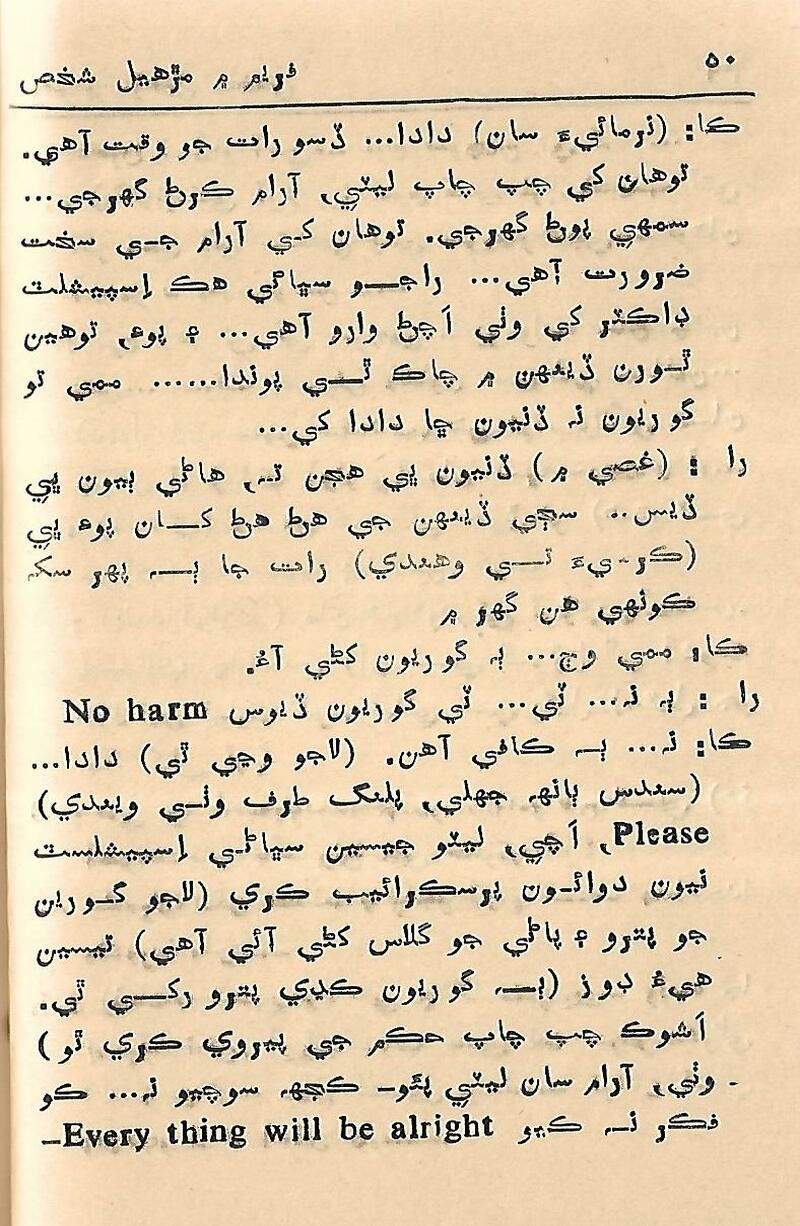 ۵۰
فريم ۾ مڙهيل شخص
ڪا: (نرمائيءَ سان) دادا... ڏسو رات جو وقت آهي.
توهان کي چپ چاپ ليٽي، آرام ڪرڻ گهرجي...
سمهي پوڻ گهرجي. توهان کي آرام جي سخت
ضرورت آهي... راجو سڀاڻي هڪ اِسپيشلٽ
ڊاڪٽر کي وٺي اَچڻ وارو آهي... ۽ پوءِ، توهين
ٿورن ڏينهن ۾ چاڪ ٿي پوندا...... ممي تو
گوريون نه ڏنيون ڇا دادا کي...
را : (غصي ۾) ڏنيون پي هجن ته، هاڻي ٻيون پي
ڏيس.. سڄي ڏينهن جي هڻ هڻ کان پوءِ پي
(ڪرسيءَ تي وهندي) رات جا ٻه پهر سک
ڪونهي هن گهر ۾
ڪا: ممي وڃ... ٻه گوريون کڻي آءُ.
را : ٻه نه... ٽي... ٽي گوريون ڏيوس No harm
ڪا: نه... ٻه ڪافي آهن. (لاجو وڃي ٿي) دادا...
(سندس ٻانهه جهلي، پلنگ طرف وٺي ويندي)
Please، اَچي، ليٽو جيسين سڀاڻي اِسپيشلسٽ
نيون دوائون پرسڪرائيب ڪري (لاجو گورين
جو پترو ۽ پاڻي جو گلاس کڻي آئي آهي) تيسين
هيءُ ڊوز (ٻه گوريون ڪڍي پترو رکي ٿي.
اَشوڪ چپ چاپ حڪم جي پيروي ڪري ٿو)
- وٺي، آرام سان ليٽي پئو– ڪجهه سوچيو نه... ڪو
فڪر نه ڪيو Every thing will be alright–